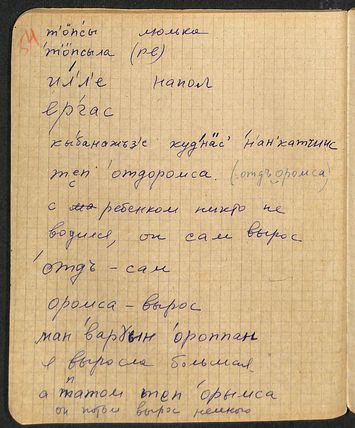 54
т'öпсы люлька
'тöпсыла (ре)
ил'л'е напол
ер'гас
кы'банажъз'е куд'нäс 'н'ан'катчинс
теп 'отдоромса. ('отдъ оромса)
с ребенком никто не
водился, он сам вырос
'отдъ - сам
оромса - вырос
ман 'варɣын 'ороппан
я выросла большая
а патом теп 'орымса
он потом вырос немного